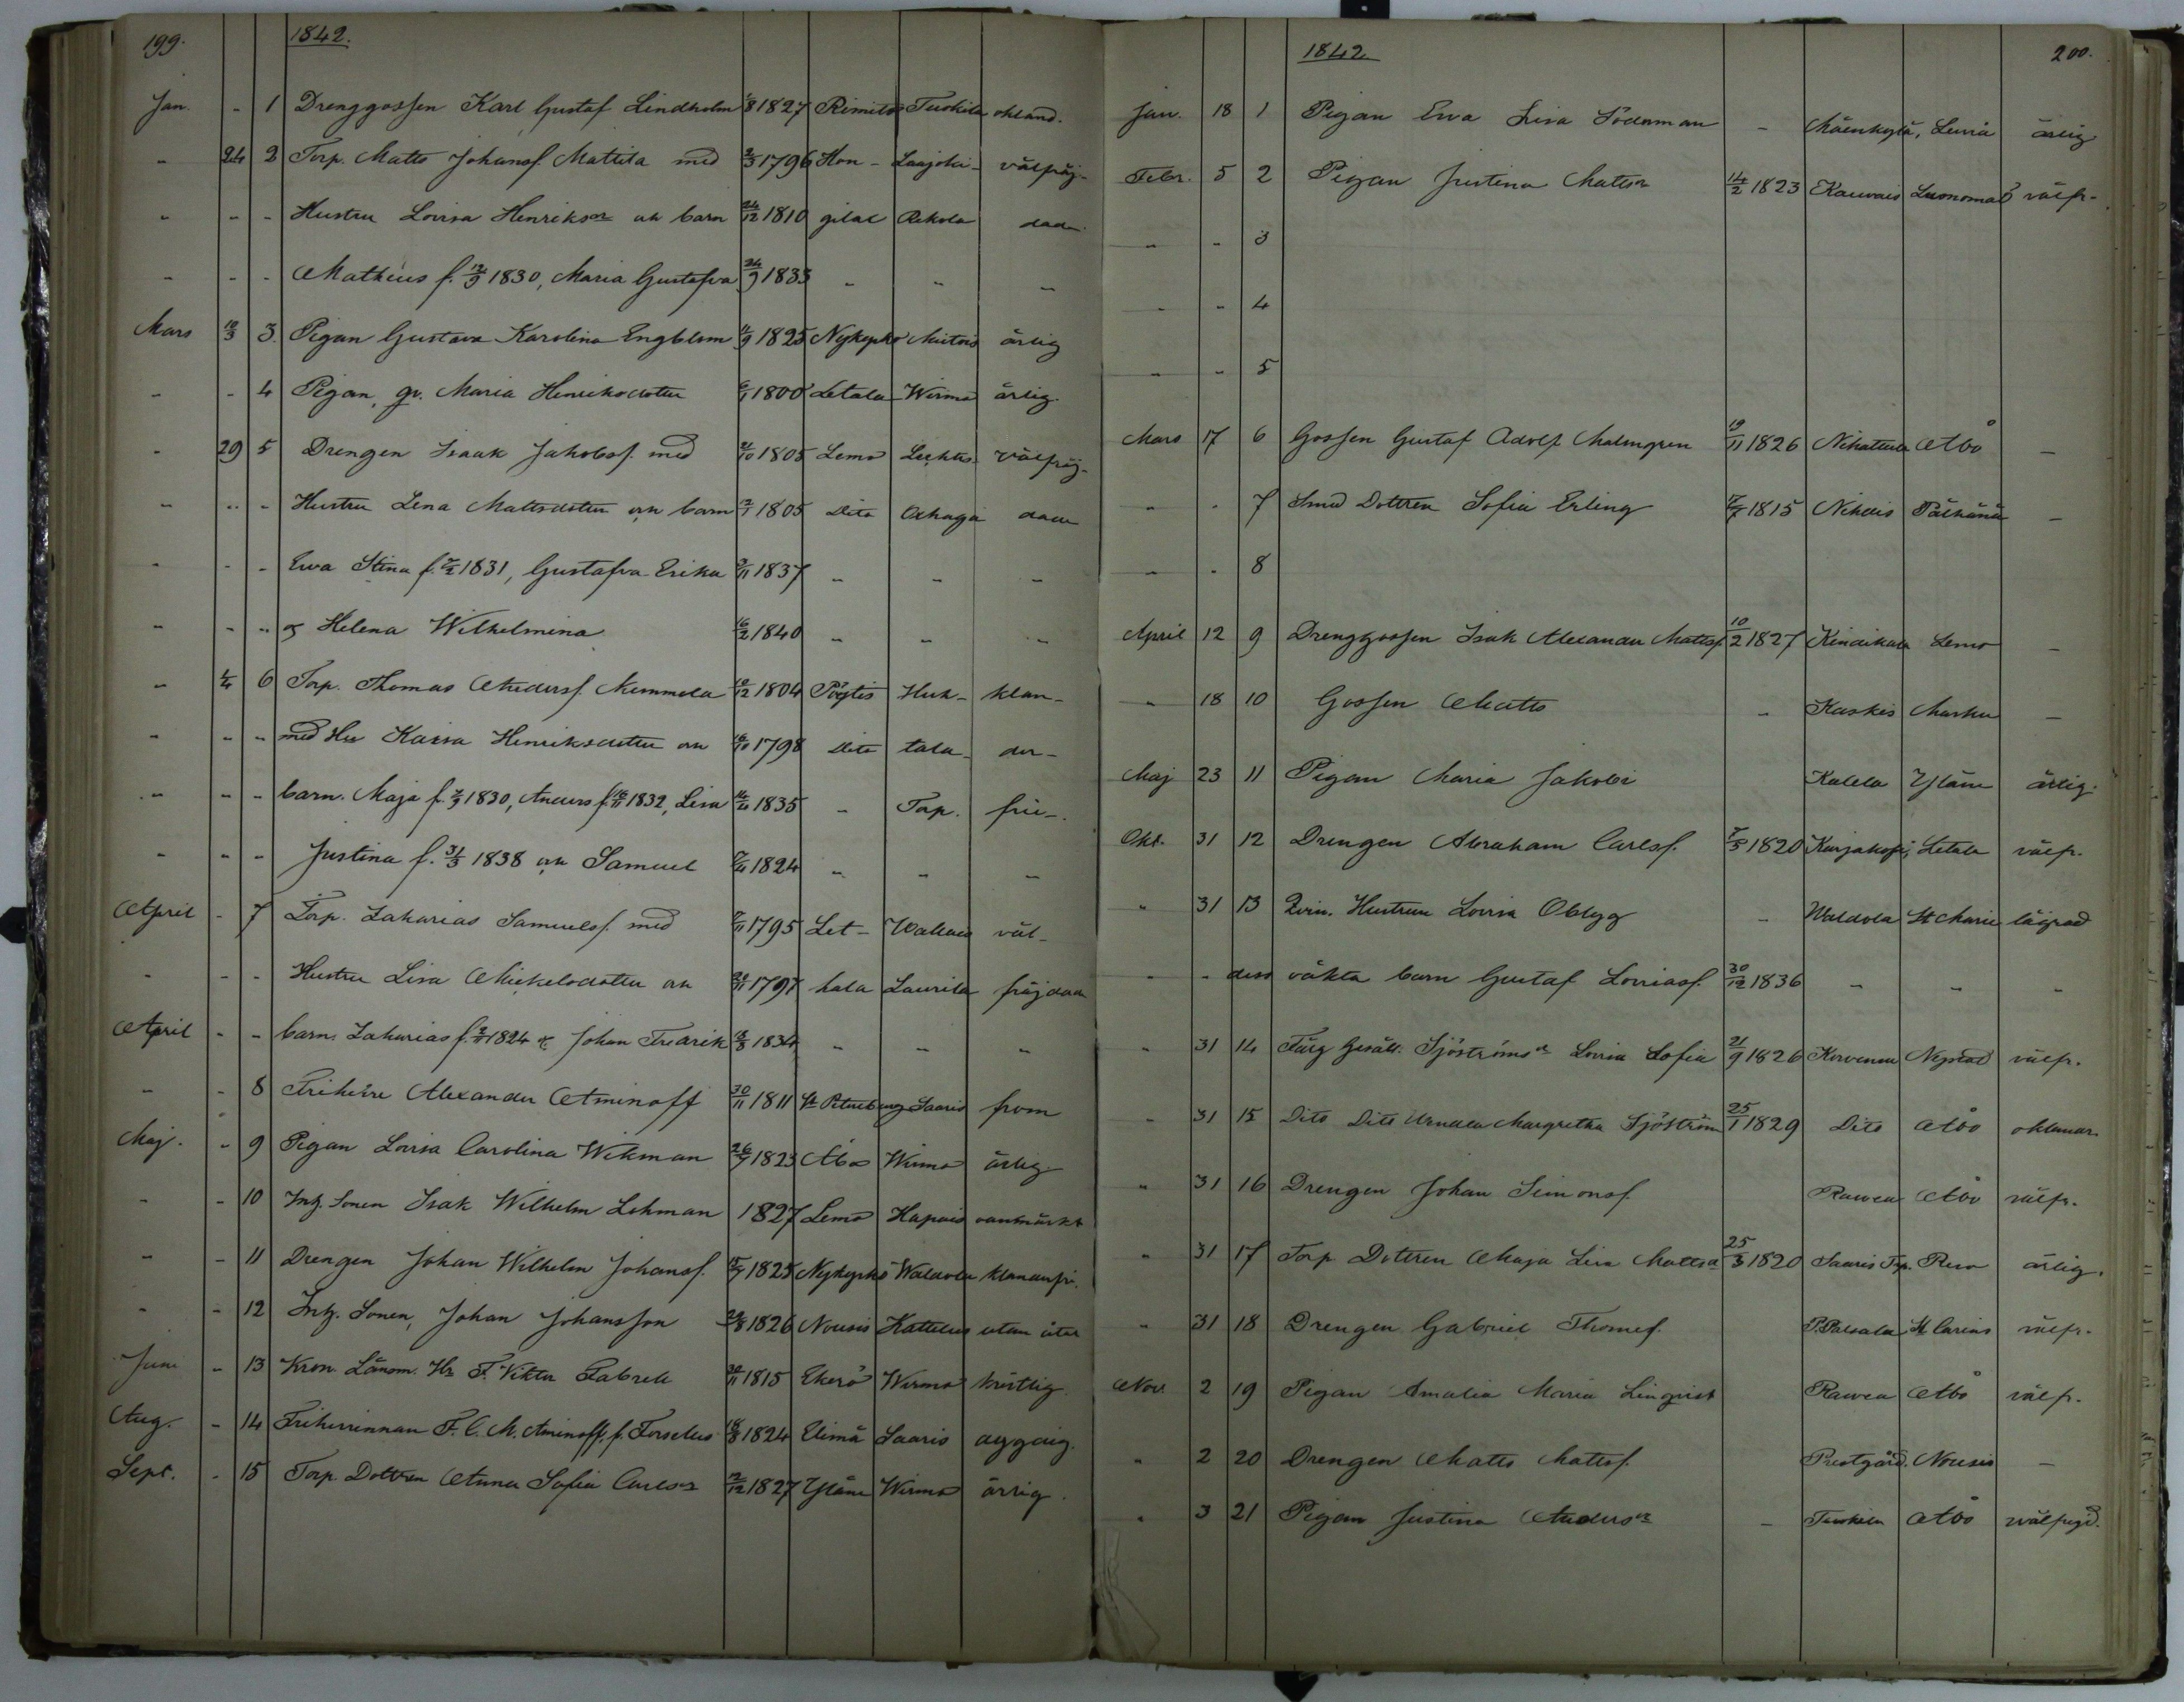 199.
1842.
Jan. - 1 Drenggossen Karl Gustaf Lindholm 1/8 1827 Rimito Tuokila okländ.
- 24 2 Torp. Matts Johansf. Mattila med 2/3 1796 Hon- Laajoki- välfräj-
- - - Hustru Lovisa Henriksdr och barn 24/12 1810 gilae Rekola dade
- - - Mathias f. 12/9 1830, Maria Gustafva 24/9 1833 - - -
Mars 10/3 3. Pigan Gustava Karolina Engblom 11/9 1825 Nykyrko Mietois ärlig
- - 4 Pigan, gv. Maria Henriksdotter 1800 Letala Wirmo ärlig.
- 29 5 Drengen Isaak Jakobsf. med 2/10 1805 Lemo välfräj-
- - - Hustru Lena Mattsdotter och barn 12/7 1805 Dito dade
- - - Ewa Stina f. 7/2 1831, Gustafva Erika 2/11 1837 - - -
- - - & Helena Wilhelmina 16/2 1840 - - -
- 4/4 6 Torp. Thomas Andersf. Nummela 10/12 1804 Pöytis Huh- klan-
- - - med Hu Kaisa Henriksdotter och 6/10 1798 Dito tala der-
- - - barn. Maja f. 7/9 1830, Anders f. 16/11 1832, Lisa 1835 - Torp. frie-.
- - - Justina f. 31/3 1838 och Samuel 1824 - - -
April - 7 Torp. Zakarias Samuelsf. med 2/11 1795 Let- väl-
- - - Hustru Lisa Mickelsdotter och 20/11 1797 hala Laurila fräjdade
April - - barn. Zakarias f. 2/11 1824 & Johan Fredrik 18/8 1834 - - -
- - 8 Friherre Alexander Aminoff 30/11 1811 St Petersburg Saaris from
Maj. - 9 Pigan Lovisa Carolina Wikman 26/7 1823 Åbo Wirmo ärlig.
- - 10 Inh. Sonen Isak Wilhelm Lehman 1827 Lemo Hapais oanmärkt
- - 11 Drengen Johan Wilhelm Johansf. 15/7 1825 Nykyrko Waldola klanderfri.
- - 12 Inh. Sonen, Johan Johansson 28/8 1826 Nousis Kattelus utan åtal
Juni - 13 Kron Länsm. Hr F. Viktor Fabrell 30/11 1815 Ekerö Wirmo kristlig.
Aug. - 14 Friherrinnan F. C. M. Aminoff, f. Forselus 18/8 1824 Elimä Saaris
Sept. - 15 Torp. Dottren Anna Sofia Carlsdr 2/12 1827 Yläne Wirmo ärlig.
1842.
200.
Jan. 18 1 Pigan Ewa Lisa Söderman - Mäenkylä, Luvia ärlig
Febr. 5 2 Pigan Justina Mattsdr 14/2 1823 Kauvais Luonomaä välfr-
- - 3
- - 4
- - 5
Mars 17 6 Gossen Gustaf Adolf Malmgren 19/11 1826 Nihattula Åbo -
- - 7 Smed Dottren Sofia Erling 7/7 1815 Nihdis Pälkänä -
- - 8
April 12 9 Drenggossen Isak Alexander Mattsf. 10/2 1827 Kindikala Lemo -
- 18 10 Gossen Matts - Kaskis Masku -
Maj 23 11 Pigan Maria Jakobi Kalela Yläne ärlig.
Okt. 31 12 Drengen Abraham Carlsf. 7/5 1820 Kurjakoski, Letala välfr.
" 31 13 Qvin. Hustrun Lovisa Oblyg - Waldola St Marie lägrad
- - dess oäkta barn Gustaf Lovisasf. 30/12 1836 - - -
" 31 14 Färg Gesäll. Sjöströmsdr Lovisa Sofia 21/9 1826 Korvensu Nystad välfr.
" 31 15 Dito Dito Margretha Sjöström 25/1 1829 Dito Åbo oklandr.
" 31 16 Drengen Johan Simonsf. Rawea Åbo välfr.
" 31 17 Torp. Dottren Maja Lisa Mattsdr 25/3 1820 Saaris Torp. Reso ärlig.
" 31 18 Drengen Gabriel Thomsf. P.Palsala St Carins välfr.
Nov. 2 19 Pigan Amalia Maria Linqvist Rawea Åbo välfr.
" 2 20 Drengen Matts Mattsf. Prestgård. Nousis -
" 3 21 Pigan Justina Andersdr - Tuokila Åbo välfrejd.